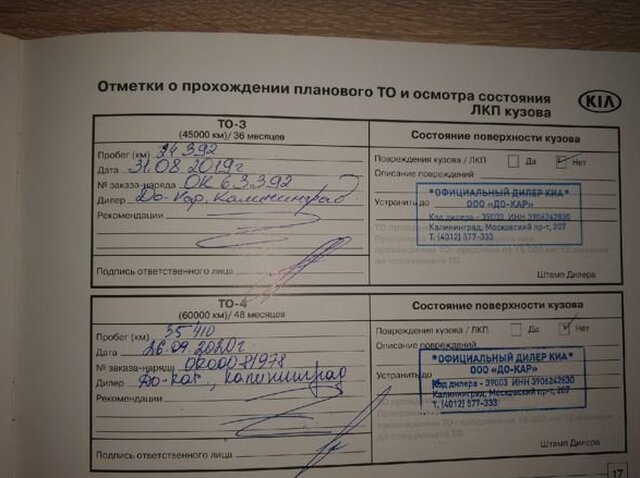 Отметки о прохождении планового ТО и осмотра состояния
ЛКП кузова
KIA
ТО-3
(45000 км)/ 36 месяцев
Состояние поверхности кузова
Пробег (км) 24 392
Повреждения кузова / ЛКП Да Нет
Дата 31.08.2019г
Описание повреждений
№ заказа-наряда ОК 63392
Дилер До-Кар, Калининград
Устранить до
Рекомендации
*ОФИЦИАЛЬНЫЙ ДИЛЕР КИА*
ООО «ДО-КАР»
Код дилера - 39003 ИНН 3906242630
Калининград, Московский пр-т, 207
Т. (4012) 577-333
Подпись ответственного лица
Штамп Дилера
ТО-4
(60000 км)/ 48 месяцев
Состояние поверхности кузова
Пробег (км) 35 410
Повреждения кузова / ЛКП Да Нет
Дата 26.09.2020г.
Описание повреждений
№ заказа-наряда
Дилер До-Кар, Калининград
Устранить до
Рекомендации
*ОФИЦИАЛЬНЫЙ ДИЛЕР КИА*
ООО «ДО-КАР»
Код дилера - 39003 ИНН 3906242630
Калининград, Московский пр-т, 207
Т. (4012) 577-333
Подпись ответственного лица
Штамп Дилера
17